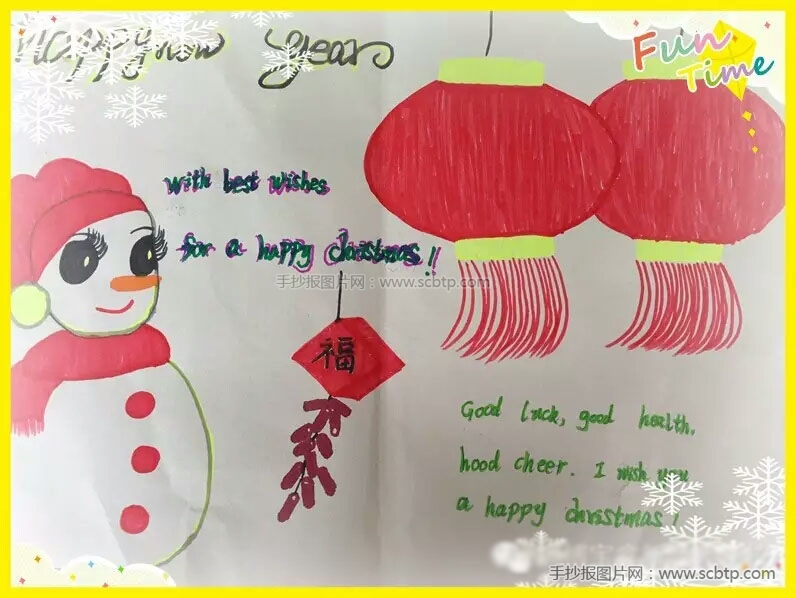 Happy new year
Fun
Time
with best wishes
for a happy christmas!!
手抄报图片网：www.scbtp.com
福
Good luck, good health,
hood cheer. I wish you
a happy christmas!
手抄报图片网：www.scbtp.com